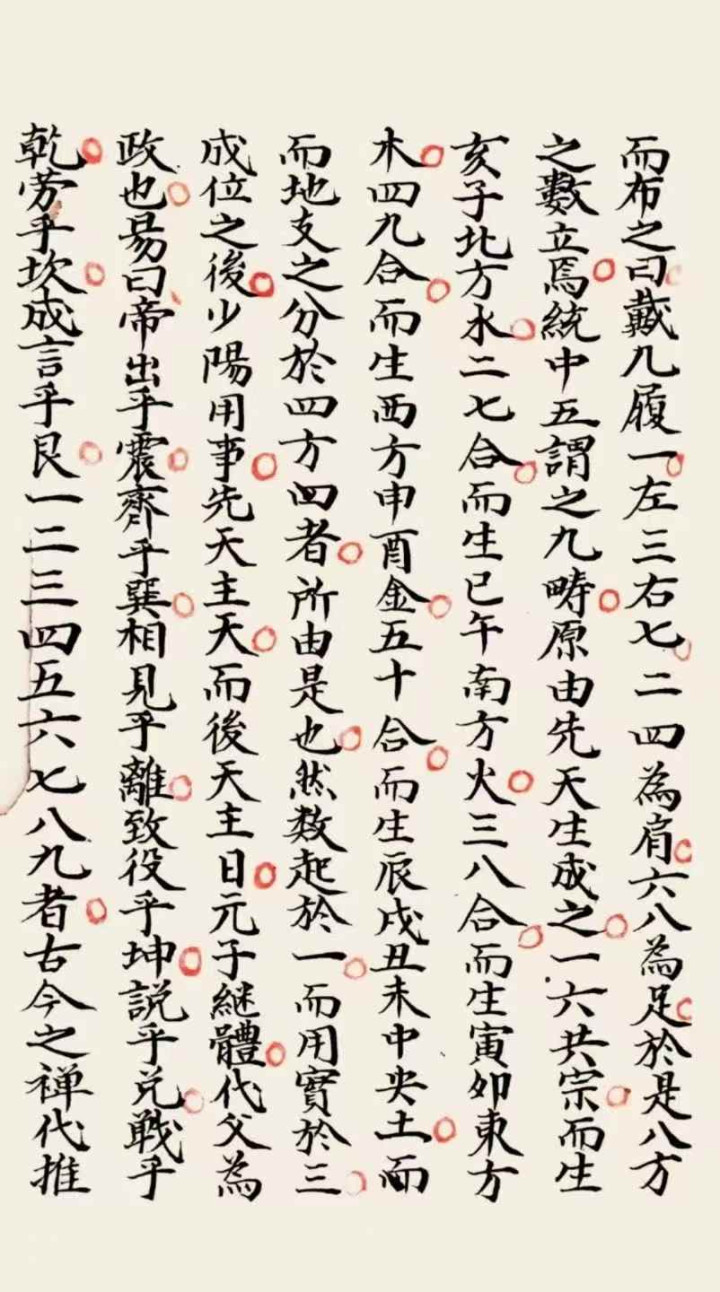 而布之曰戴九履一左三右七二四為肩六八為足於是八方
之數立焉統中五謂之九疇原由先天生成之一六共宗而生
亥子北方水二七合而生巳午南方火三八合而生寅卯東方
木四九合而生西方申酉金五十合而生辰戌丑未中央土而
而地支之分於四方四者所由是也然数起於一而用實於三
成位之後少陽用事先天主天而後天主日元子継體代父為
政也易曰帝出乎震齊乎巽相見乎離致役乎坤説乎兑戰乎
乾劳乎坎成言乎艮一二三四五六七八九者古今之禅代推